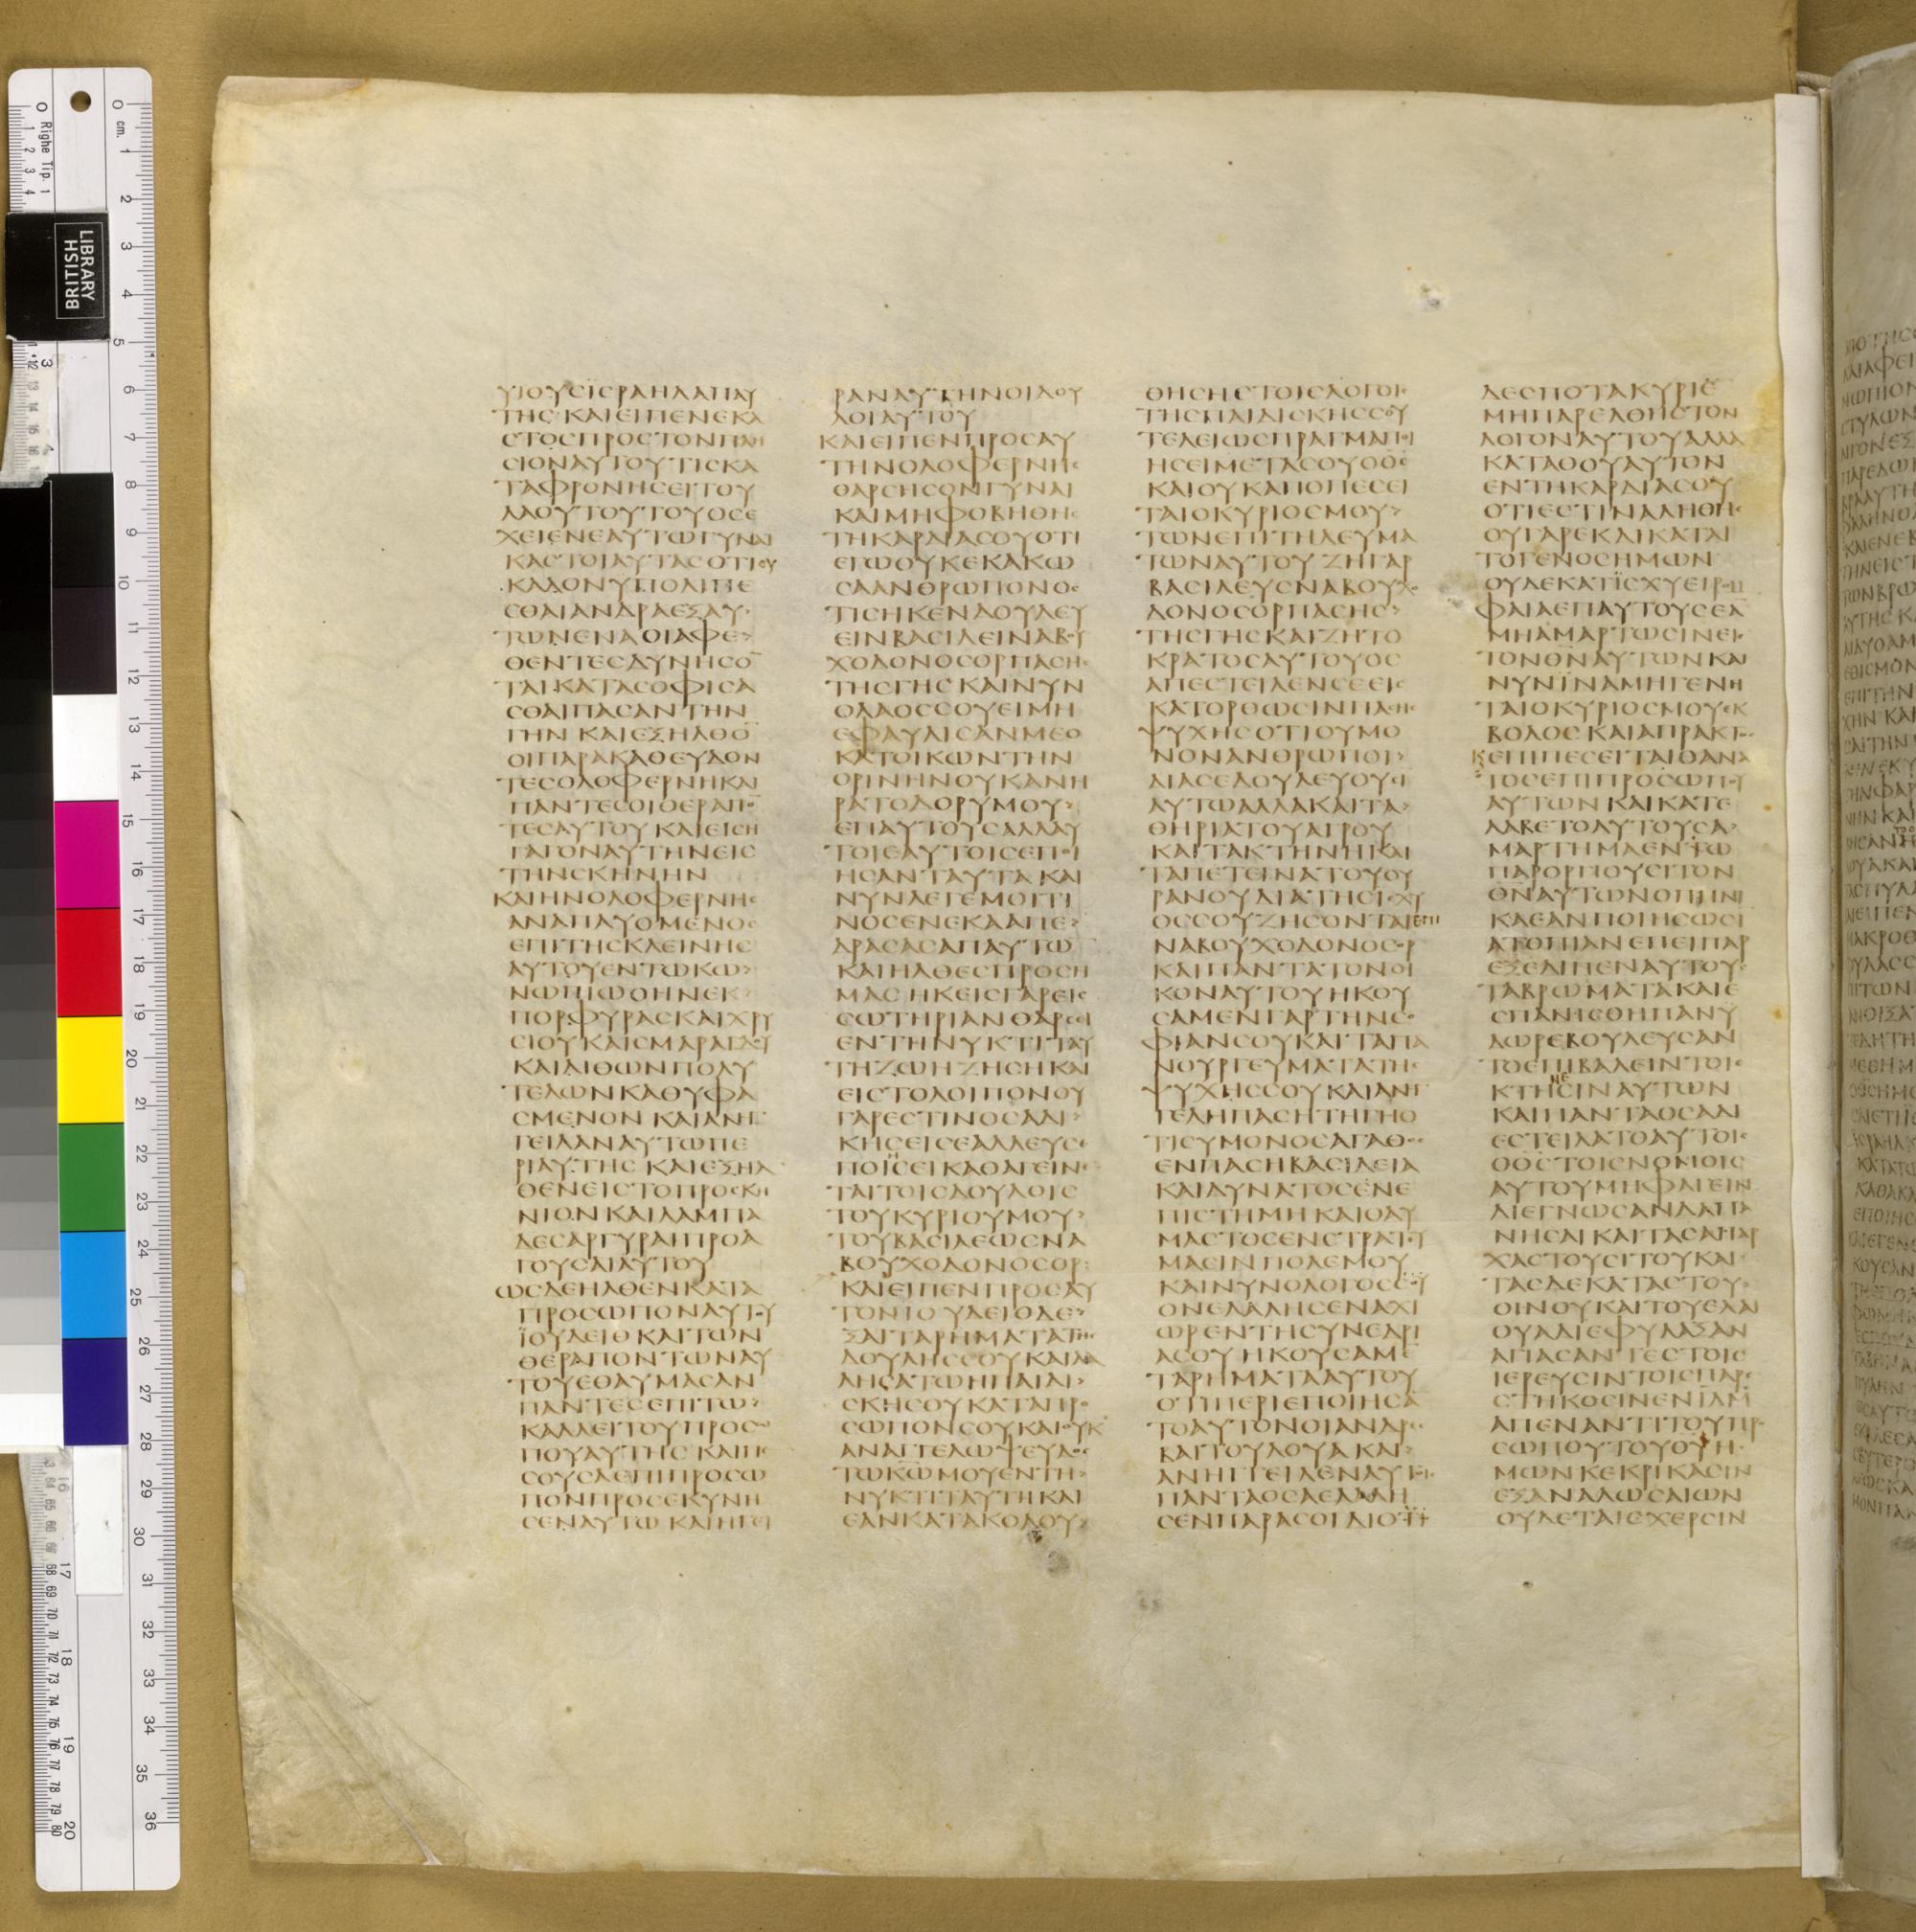 BRITISH
LIBRARY
Righe Tip. 1
cm.
ΥΙΟΥΣΙΣΡΑΗΛΑΠΑΥ
ΤΗΣ ΚΑΙΕΙΠΕΝΕΚΑ
ΣΤΟΣΠΡΟΣΤΟΝΠΛΗ
ΣΙΟΝΑΥΤΟΥΤΙΣΚΑ
ΤΑΦΡΟΝΗΣΕΙΤΟΥ
ΛΑΟΥΤΟΥΤΟΥΟΣΕ
ΧΕΙΕΝΕΑΥΤΩΓΥΝΑΙ
ΚΑΣΤΟΙΑΥΤΑΣΟΤΙΟΥ
ΚΑΛΟΝΥΠΟΛΙΠΕ
ΣΘΑΙΑΝΔΡΑΕΞΑΥ>
ΤΩΝΕΝΑΟΙΑΦΕ>
ΘΕΝΤΕΣΔΥΝΗΣΟ¯
ΤΑΙΚΑΤΑΣΟΦΙΣΑ
ΣΘΑΙΠΑΣΑΝΤΗΝ
ΓΗΝ ΚΑΙΕΞΗΛΘΟ¯
ΟΙΠΑΡΑΚΑΘΕΥΔΟΝ
ΤΕΣΟΛΟΦΕΡΝΗΚΑΙ
ΠΑΝΤΕΣΟΙΘΕΡΑΠΟ¯
ΤΕΣΑΥΤΟΥ ΚΑΙΕΙΣΗ
ΓΑΓΟΝΑΥΤΗΝΕΙΣ
ΤΗΝΣΚΗΝΗΝ
ΚΑΙΗΝΟΛΟΦΕΡΝΗΣ
ΑΝΑΠΑΥΟΜΕΝΟΣ
ΕΠΙΤΗΣΚΛΕΙΝΗΣ
ΑΥΤΟΥΕΝΤΩΚΩ>
ΝΩΠΙΩΟΗΝΕΚ
ΠΟΡΦΥΡΑΣΚΑΙΧΡΥ
ΣΙΟΥΚΑΙΣΜΑΡΑΓΔΟΥ
ΚΑΙΛΙΘΩΝΠΟΛΥ
ΤΕΛΩΝΚΑΘΥΦΑ
ΣΜΕΝΟΝ ΚΑΙΑΝΗΓ
ΓΕΙΛΑΝΑΥΤΩΠΕ
ΡΙΑΥΤΗΣ ΚΑΙΕΞΗΛ
ΘΕΝΕΙΣΤΟΠΡΟΣΚΗ
ΝΙΟΝΚΑΙΛΑΜΠΑ
ΔΕΣΑΡΓΥΡΑΙΠΡΟΑ
ΓΟΥΣΑΙΑΥΤΟΥ
ΩΣΔΕΗΛΘΕΝΚΑΤΑ
ΠΡΟΣΩΠΟΝΑΥΤΟΥ
ΪΟΥΔΕΙΘ ΚΑΙΤΩΝ
ΘΕΡΑΠΟΝΤΩΝΑΥ
ΤΟΥΕΘΑΥΜΑΣΑΝ
ΠΑΝΤΕΣΕΠΙΤΩ>
ΚΑΛΛΕΙΤΟΥΠΡΟΣΩ
ΠΟΥΑΥΤΗΣ ΚΑΙΠΕ
ΣΟΥΣΑΕΠΙΠΡΟΣΩ
ΠΟΝΠΡΟΣΕΚΥΝΗ
ΣΕΝΑΥΤΩ ΚΑΙΗΓΕΙ
ΡΑΝΑΥΤΗΝΟΙΔΟΥ
ΛΟΙΑΥΤΟΥ
ΚΑΙΕΙΠΕΝΠΡΟΣΑΥ
ΤΗΝΟΛΟΦΕΡΝΗΣ
ΘΑΡΣΗΣΟΝΓΥΝΑΙ
ΚΑΙΜΗΦΟΒΗΘΗΣ
ΤΗΚΑΡΔΙΑΣΟΥΟΤΙ
ΕΓΩΟΥΚΕΚΑΚΩ
ΣΑΑΝΘΡΩΠΟΝΟΣ
ΤΙΣΗΚΕΝΔΟΥΛΕΥ
ΕΙΝΒΑΣΙΛΕΙΝΑΒΟΥ
ΧΟΔΟΝΟΣΟΡΠΑΣΗΣ
ΤΗΣΓΗΣ ΚΑΙΝΥΝ
ΟΛΑΟΣΣΟΥΕΙΜΗ
ΕΦΑΥΛΙΣΑΝΜΕΟ
ΚΑΤΟΙΚΩΝΤΗΝ
ΟΡΙΝΗΝΟΥΚΑΝΗ
ΡΑΤΟΔΟΡΥΜΟΥ>
ΕΠΑΥΤΟΥΣΑΛΛΑΥ
ΤΟΙΕΑΥΤΟΙΣΕΠΟΙ
ΗΣΑΝΤΑΥΤΑ ΚΑΙ
ΝΥΝΛΕΓΕΜΟΙΤΙ
ΝΟΣΕΝΕΚΑΑΠΕ>
ΔΡΑΣΑΣΑΠΑΥΤΩ
ΚΑΙΗΛΘΕΣΠΡΟΣΗ
ΜΑΣ ΗΚΕΙΣΓΑΡΕΙΣ
ΣΩΤΗΡΙΑΝ ΘΑΡΣΕΙ
ΕΝΤΗΝΥΚΤΙΤΑΥ
ΤΗΖΩΗ ΖΗΣΗ ΚΑΙ
ΕΙΣΤΟΛΟΙΠΟΝΟΥ
ΓΑΡΕΣΤΙΝΟΣΑΔΙ>
ΚΗΣΕΙΣΕΑΛΛΕΥΣΕ
ΠΟΙΗΣΕΙΚΑΘΑΓΕΙΝΕ
ΤΑΙΤΟΙΣΔΟΥΛΟΙΣ
ΤΟΥΚΥΡΙΟΥΜΟΥ>
ΤΟΥΒΑΣΙΛΕΩΣΝΑ
ΒΟΥΧΟΔΟΝΟΣΟΡ
ΚΑΙΕΙΠΕΝΠΡΟΣΑΥ
ΤΟΝΙΟΥΔΕΙΘΔΕ>
ΞΑΙΤΑΡΗΜΑΤΑΤΗΣ
ΔΟΥΛΗΣΣΟΥΚΑΙΛΑ
ΛΗΣΑΤΩΗΠΑΙΔΙ>
ΣΚΗΣΟΥΚΑΤΑΠΡΟ
ΣΩΠΟΝΣΟΥΚΑΙΟΥΚ
ΑΝΑΓΓΕΛΩΨΕΥΔΟΣ
ΤΩΚΩΜΟΥΕΝΤΗ>
ΝΥΚΤΙΤΑΥΤΗΚΑΙ
ΕΑΝΚΑΤΑΚΟΛΟΥ>
ΘΗΣΗΣΤΟΙΣΛΟΓΟΙΣ
ΤΗΣΠΑΙΔΙΣΚΗΣΣΟΥ
ΤΕΛΕΙΩΣΠΡΑΓΜΑΠΟΙ
ΗΣΕΙΜΕΤΑΣΟΥΟΘΣ
ΚΑΙΟΥΚΑΠΟΠΕΣΕΙ
ΤΑΙΟΚΥΡΙΟΣΜΟΥ>
ΤΩΝΕΠΙΤΗΔΕΥΜΑ
ΤΩΝΑΥΤΟΥ ΖΗΓΑΡ
ΒΑΣΙΛΕΥΣΝΑΒΟΥΧΟ
ΔΟΝΟΣΟΡΠΑΣΗΣ>
ΤΗΣΓΗΣΚΑΙΖΗΤΟ
ΚΡΑΤΟΣΑΥΤΟΥΟΣ
ΑΠΕΣΤΕΙΛΕΝΣΕΕΙΣ
ΚΑΤΟΡΘΩΣΙΝΠΑΣΗΣ
ΨΥΧΗΣΟΤΙΟΥΜΟ
ΝΟΝΑΝΘΡΩΠΟΙ>
ΔΙΑΣΕΔΟΥΛΕΥΟΥΣΙ
ΑΥΤΩΑΛΛΑΚΑΙΤΑ>
ΘΗΡΙΑΤΟΥΑΓΡΟΥ
ΚΑΙΤΑΚΤΗΝΗΚΑΙ
ΤΑΠΕΤΕΙΝΑΤΟΥΟΥ
ΡΑΝΟΥΔΙΑΤΗΣΙΣΧΥ
ΟΣΣΟΥΖΗΣΟΝΤΑΙΕΠΙ
ΝΑΒΟΥΧΟΔΟΝΟΣΟΡ
ΚΑΙΠΑΝΤΑΤΟΝΟΙ
ΚΟΝΑΥΤΟΥΗΚΟΥ
ΣΑΜΕΝΓΑΡΤΗΝΣΟ
ΦΙΑΝΣΟΥΚΑΙΤΑΠΑ
ΝΟΥΡΓΕΥΜΑΤΑΤΗΣ
ΨΥΧΗΣΣΟΥ ΚΑΙΑΝΗΓ
ΓΕΛΗΠΑΣΗΤΗΓΗΟ
ΤΙΣΥΜΟΝΟΣΑΓΑΘΟΣ
ΕΝΠΑΣΗΒΑΣΙΛΕΙΑ
ΚΑΙΔΥΝΑΤΟΣΕΝΕ
ΠΙΣΤΗΜΗ ΚΑΙΘΑΥ
ΜΑΣΤΟΣΕΝΣΤΡΑΤΟΥ
ΜΑΣΙΝΠΟΛΕΜΟΥ
ΚΑΙΝΥΝΟΛΟΓΟΣΣΟΥ
ΟΝΕΛΑΛΗΣΕΝΑΧΙ
ΩΡΕΝΤΗΣΥΝΕΔΡΙ
ΑΣΟΥ ΗΚΟΥΣΑΜΕ¯
ΤΑΡΗΜΑΤΑΑΥΤΟΥ
ΟΤΙΠΕΡΙΕΠΟΙΗΣΑ¯
ΤΟΑΥΤΟΝΟΙΑΝΔΡΕΣ
ΒΑΙΤΟΥΛΟΥΑ ΚΑΙ>
ΑΝΗΓΓΕΙΛΕΝΑΥΤΟΙΣ
ΠΑΝΤΑΟΣΑΕΛΑΛΗ
ΣΕΝΠΑΡΑΣΟΙΔΙΟ
ΔΕΣΠΟΤΑΚΥΡΙΕ
ΜΗΠΑΡΕΛΘΗΣΤΟΝ
ΛΟΓΟΝΑΥΤΟΥΑΛΛΑ
ΚΑΤΑΘΟΥΑΥΤΟΝ
ΕΝΤΗΚΑΡΔΙΑΣΟΥ
ΟΤΙΕΣΤΙΝΑΛΗΘΗΣ
ΟΥΓΑΡΕΚΔΙΚΑΤΑΙ
ΤΟΓΕΝΟΣΗΜΩΝ
ΟΥΔΕΚΑΤΪΣΧΥΕΙΡΟΜ
ΦΑΙΑΕΠΑΥΤΟΥΣΕΑ¯
ΜΗΑΜΑΡΤΩΣΙΝΕΙΣ
ΤΟΝΘΝΑΥΤΩΝΚΑΙ
ΝΥΝΪΝΑΜΗΓΕΝΗ
ΤΑΙΟΚΥΡΙΟΣΜΟΥΕΚ
ΒΟΛΟΣ ΚΑΙΑΠΡΑΚΤΟΣ
ΚΕΠΙΠΕΣΕΙΤΑΙΘΑΝΑ
ΤΟΣΕΠΙΠΡΟΣΩΠΟΥ
ΑΥΤΩΝ ΚΑΙΚΑΤΕ
ΛΑΒΕΤΟΑΥΤΟΥΣΑ>
ΜΑΡΤΗΜΑΕΝΤΩ
ΠΑΡΟΡΓΙΟΥΣΙΤΟΝ
ΘΝΑΥΤΩΝΟΠΗΝΙ
ΚΑΕΑΝΠΟΙΗΣΩΣΙ
ΑΤΟΠΙΑΝ ΕΠΕΙΠΑΡ
ΕΞΕΛΙΠΕΝΑΥΤΟΥΣ
ΤΑΒΡΩΜΑΤΑΚΑΙΕ
ΣΠΑΝΙΣΘΗΠΑΝΥ
ΔΩΡΕΒΟΥΛΕΥΣΑΝ
ΤΟΕΠΙΒΑΛΕΙΝΤΟΙΣ
ΝΕ
ΚΤΗΣΙΝΑΥΤΩΝ
ΚΑΙΠΑΝΤΑΟΣΑΔΙ
ΕΣΤΕΙΛΑΤΟΑΥΤΟΙΣ
ΟΘΣΤΟΙΣΝΟΜΟΙΣ
ΑΥΤΟΥΜΗΦΑΓΕΙΝ
ΔΙΕΓΝΩΣΑΝΔΑΠΑ
ΝΗΣΑΙ ΚΑΙΤΑΣΑΠΑΡ
ΧΑΣΤΟΥΣΙΤΟΥΚΑΙ
ΤΑΣΔΕΚΑΤΑΣΤΟΥ>
ΟΙΝΟΥΚΑΙΤΟΥΕΛΑΙ
ΟΥΑΔΙΕΦΥΛΑΞΑΝ
ΑΓΙΑΣΑΝΤΕΣΤΟΙΣ
ΙΕΡΕΥΣΙΝΤΟΙΣΠΑΡΕ
ΣΤΗΚΟΣΙΝΕΝΙΛΜ
ΑΠΕΝΑΝΤΙΤΟΥΠΡΟ
ΣΩΠΟΥΤΟΥΘΥΗ
ΜΩΝΚΕΚΡΙΚΑΣΙΝ
ΕΞΑΝΑΛΩΣΑΙΩΝ
ΟΥΔΕΤΑΙΣΧΕΡΣΙΝ